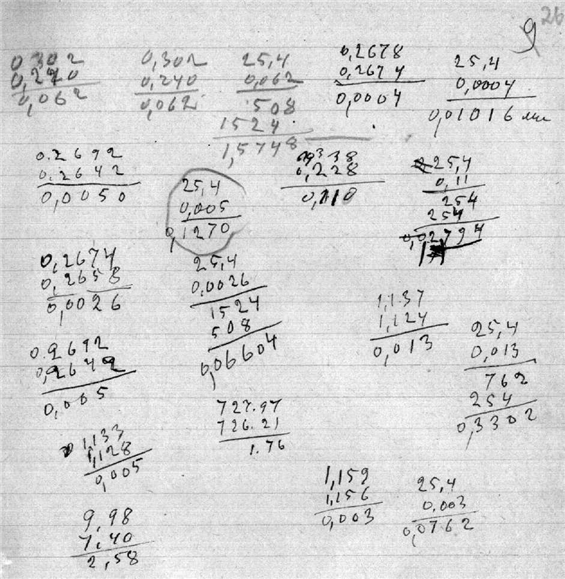 26
9
0,302
0,240
0,062
0,302
0,240
0,062
25,4
0,062
508
1524
1,5748
0,2678
0,2674
0,0004
25,4
0,0004
0,01016 мм
0.2692
0,2642
0,0050
25,4
0,005
0,1270
0,338
0,228
0,110
25,4
0,11
254
254
2,794
0,2674
0,2658
0,0026
25,4
0,0026
1524
508
0,06604
1,137
1,124
0,013
25,4
0,013
762
254
0,3302
0.2692
0,2642
0,005
727.97
726.21
1.76
1,133
1,128
0,005
1,159
1,156
0,003
25,4
0,003
0,0762
9,98
7,40
2,58